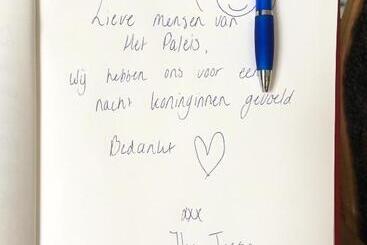 Lieve mensen van
Het Paleis,
Wij hebben ons voor een
nacht koninginnen gevoeld
Bedankt
xxx